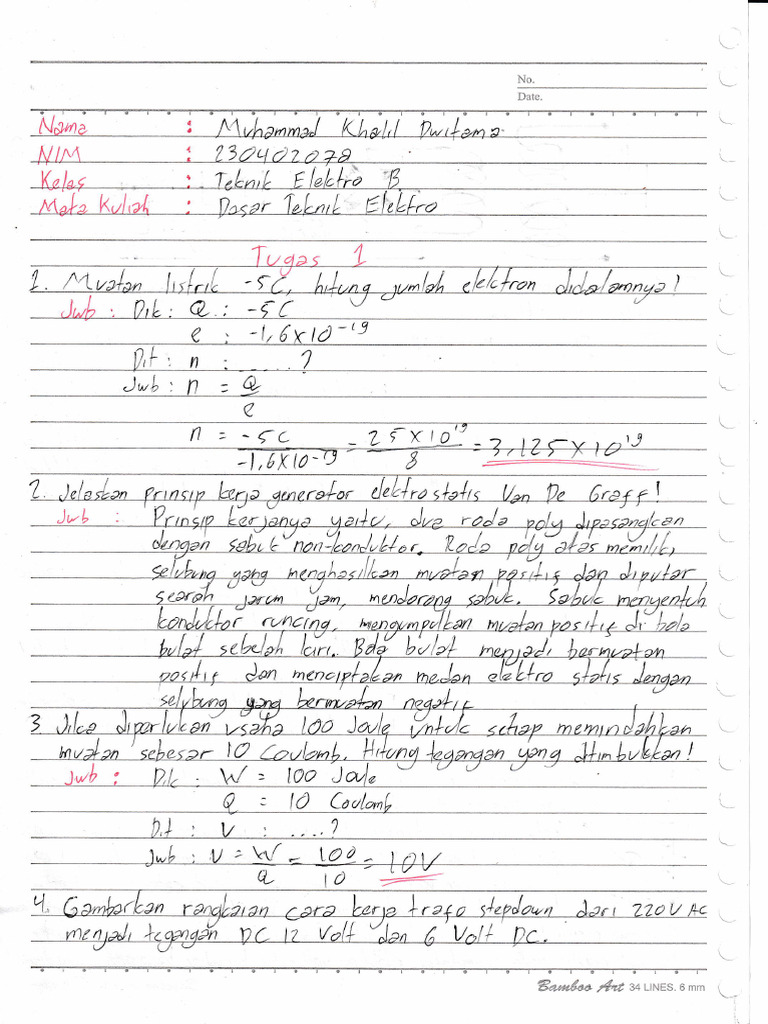 No.
Date.
Nama : Muhammad Khalil Dwitama
NIM : 230402078
Kelas : Teknik Elektro B
Mata Kuliah : Dasar Teknik Elektro
Tugas 1
1. Muatan listrik -5C, hitung jumlah elektron didalamnya!
Jwb : Dik : Q : -5C
e : -1,6×10⁻¹⁹
Dit : n : .....?
Jwb : n = Q/e
n = -5C/-1,6×10⁻¹⁹ = 25×10¹⁹/8 = 3,125×10¹⁹
2. Jelaskan prinsip kerja generator elektrostatis Van De Graff!
Jwb : Prinsip kerjanya yaitu, due roda poly dipasangkan
dengan sabuk non-konduktor. Roda poly atas memiliki
selubung yang menghasilkan muatan positif dan diputar
searah jarum jam, mendorong sabuk. Sabuk menyentuh
konduktor runcing, mengumpulkan muatan positif di bola
bulat sebelah kiri. Bola bulat menjadi bermuatan
positif dan menciptakan medan elektro statis dengan
selubung yang bermuatan negatif
3 Jika diperlukan usaha 100 Joule untuk setiap memindahkan
muatan sebesar 10 Coulomb. Hitung tegangan yang ditimbulkan!
Jwb : Dik : W = 100 Joule
Q = 10 Coulomb
Dit : V : ....?
Jwb : V = W/Q = 100/10 = 10V
4. Gambarkan rangkaian cara kerja trafo stepdown dari 220V AC
menjadi tegangan DC 12 Volt dan 6 Volt DC.
Bamboo Art 34 LINES. 6 mm